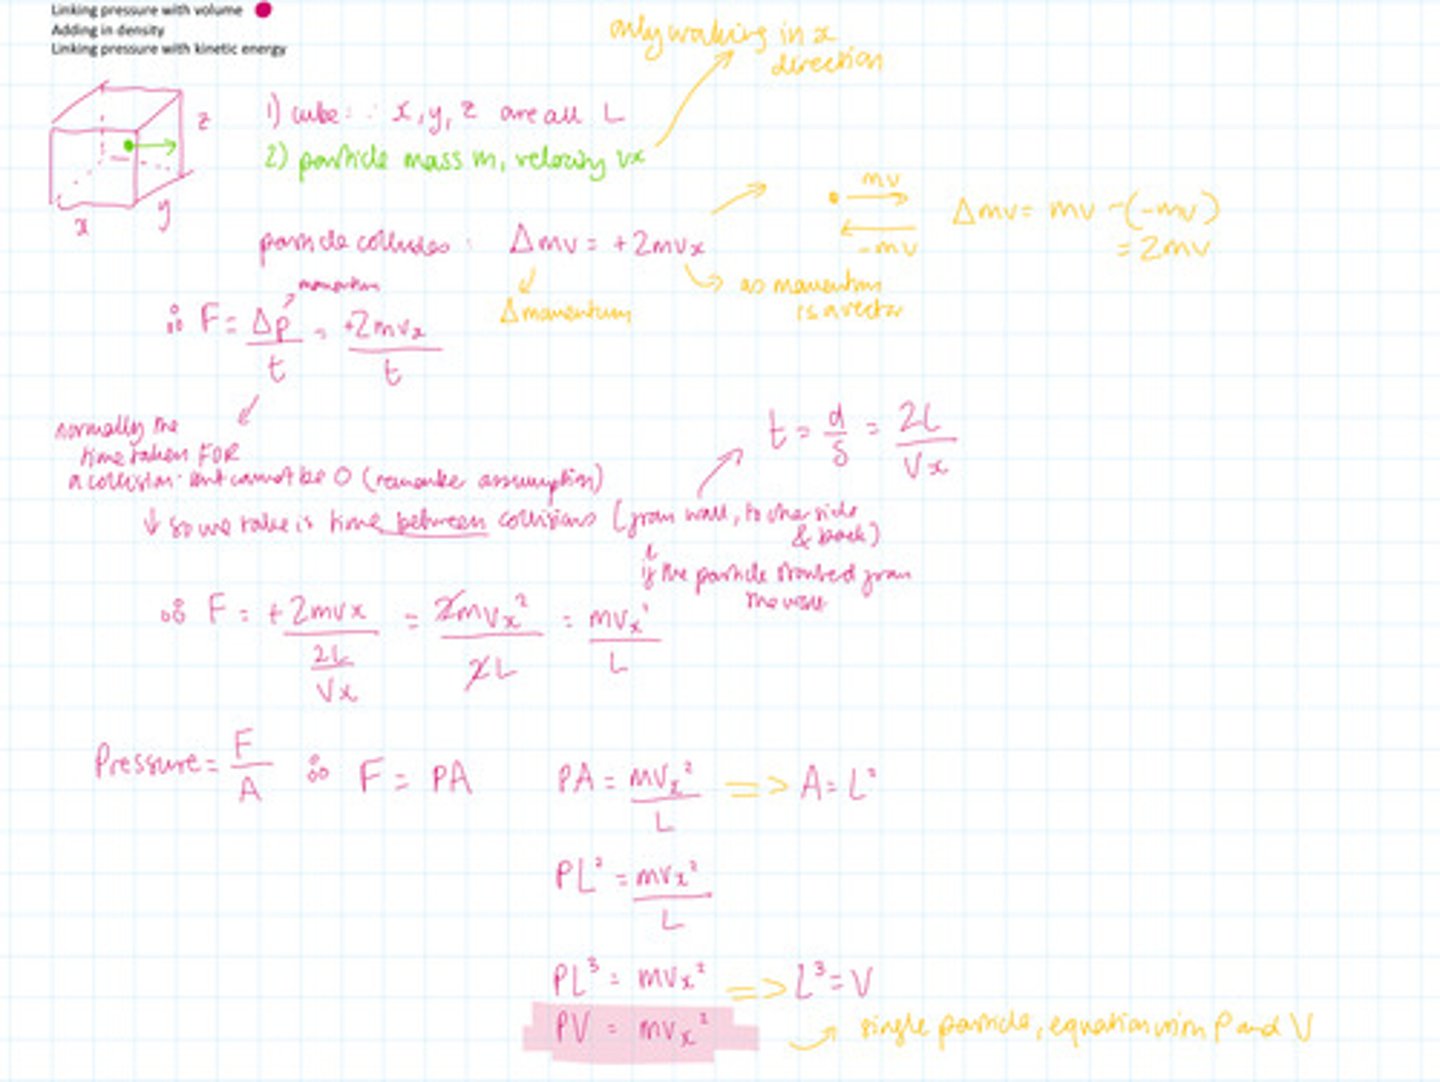 Linking pressure with volume
Adding in density
Linking pressure with kinetic energy
only working in x
direction
z
x
y
1) cube: ∴ x, y, z are all L
2) particle mass m, velocity vx
particle collides: Δmv = +2mvx
mv
-mv
Δmv = mv -(-mv)
= 2mv
Δmomentum
as momentum
is a vector
momentum
∴ F = Δp/t = +2mvx/t
normally the
time taken FOR
a collision but cannot be 0 (remember assumption)
↓ so we take is time between collisions (from wall, to other side
& back)
if the particle started from
the wall
t = d/s = 2L/Vx
∴ F = +2mvx/(2L/Vx) = 2mvx²/2L = mvx²/L
Pressure = F/A ∴ F = PA
PA = mvx²/L => A = L²
PL² = mvx²/L
PL³ = mvx² => L³ = V
PV = mvx²
single particle, equation with P and V